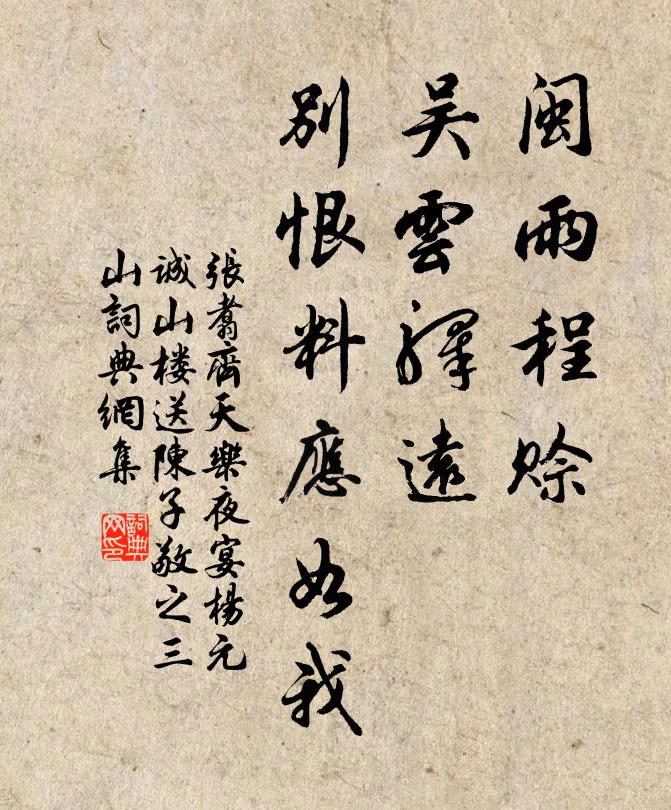 閩雨程賒
吴雲驛遠
別恨料應如我
張翥齊天樂夜宴楊元
誠山楼送陳子敬之三
山詞典網集
詞典网印